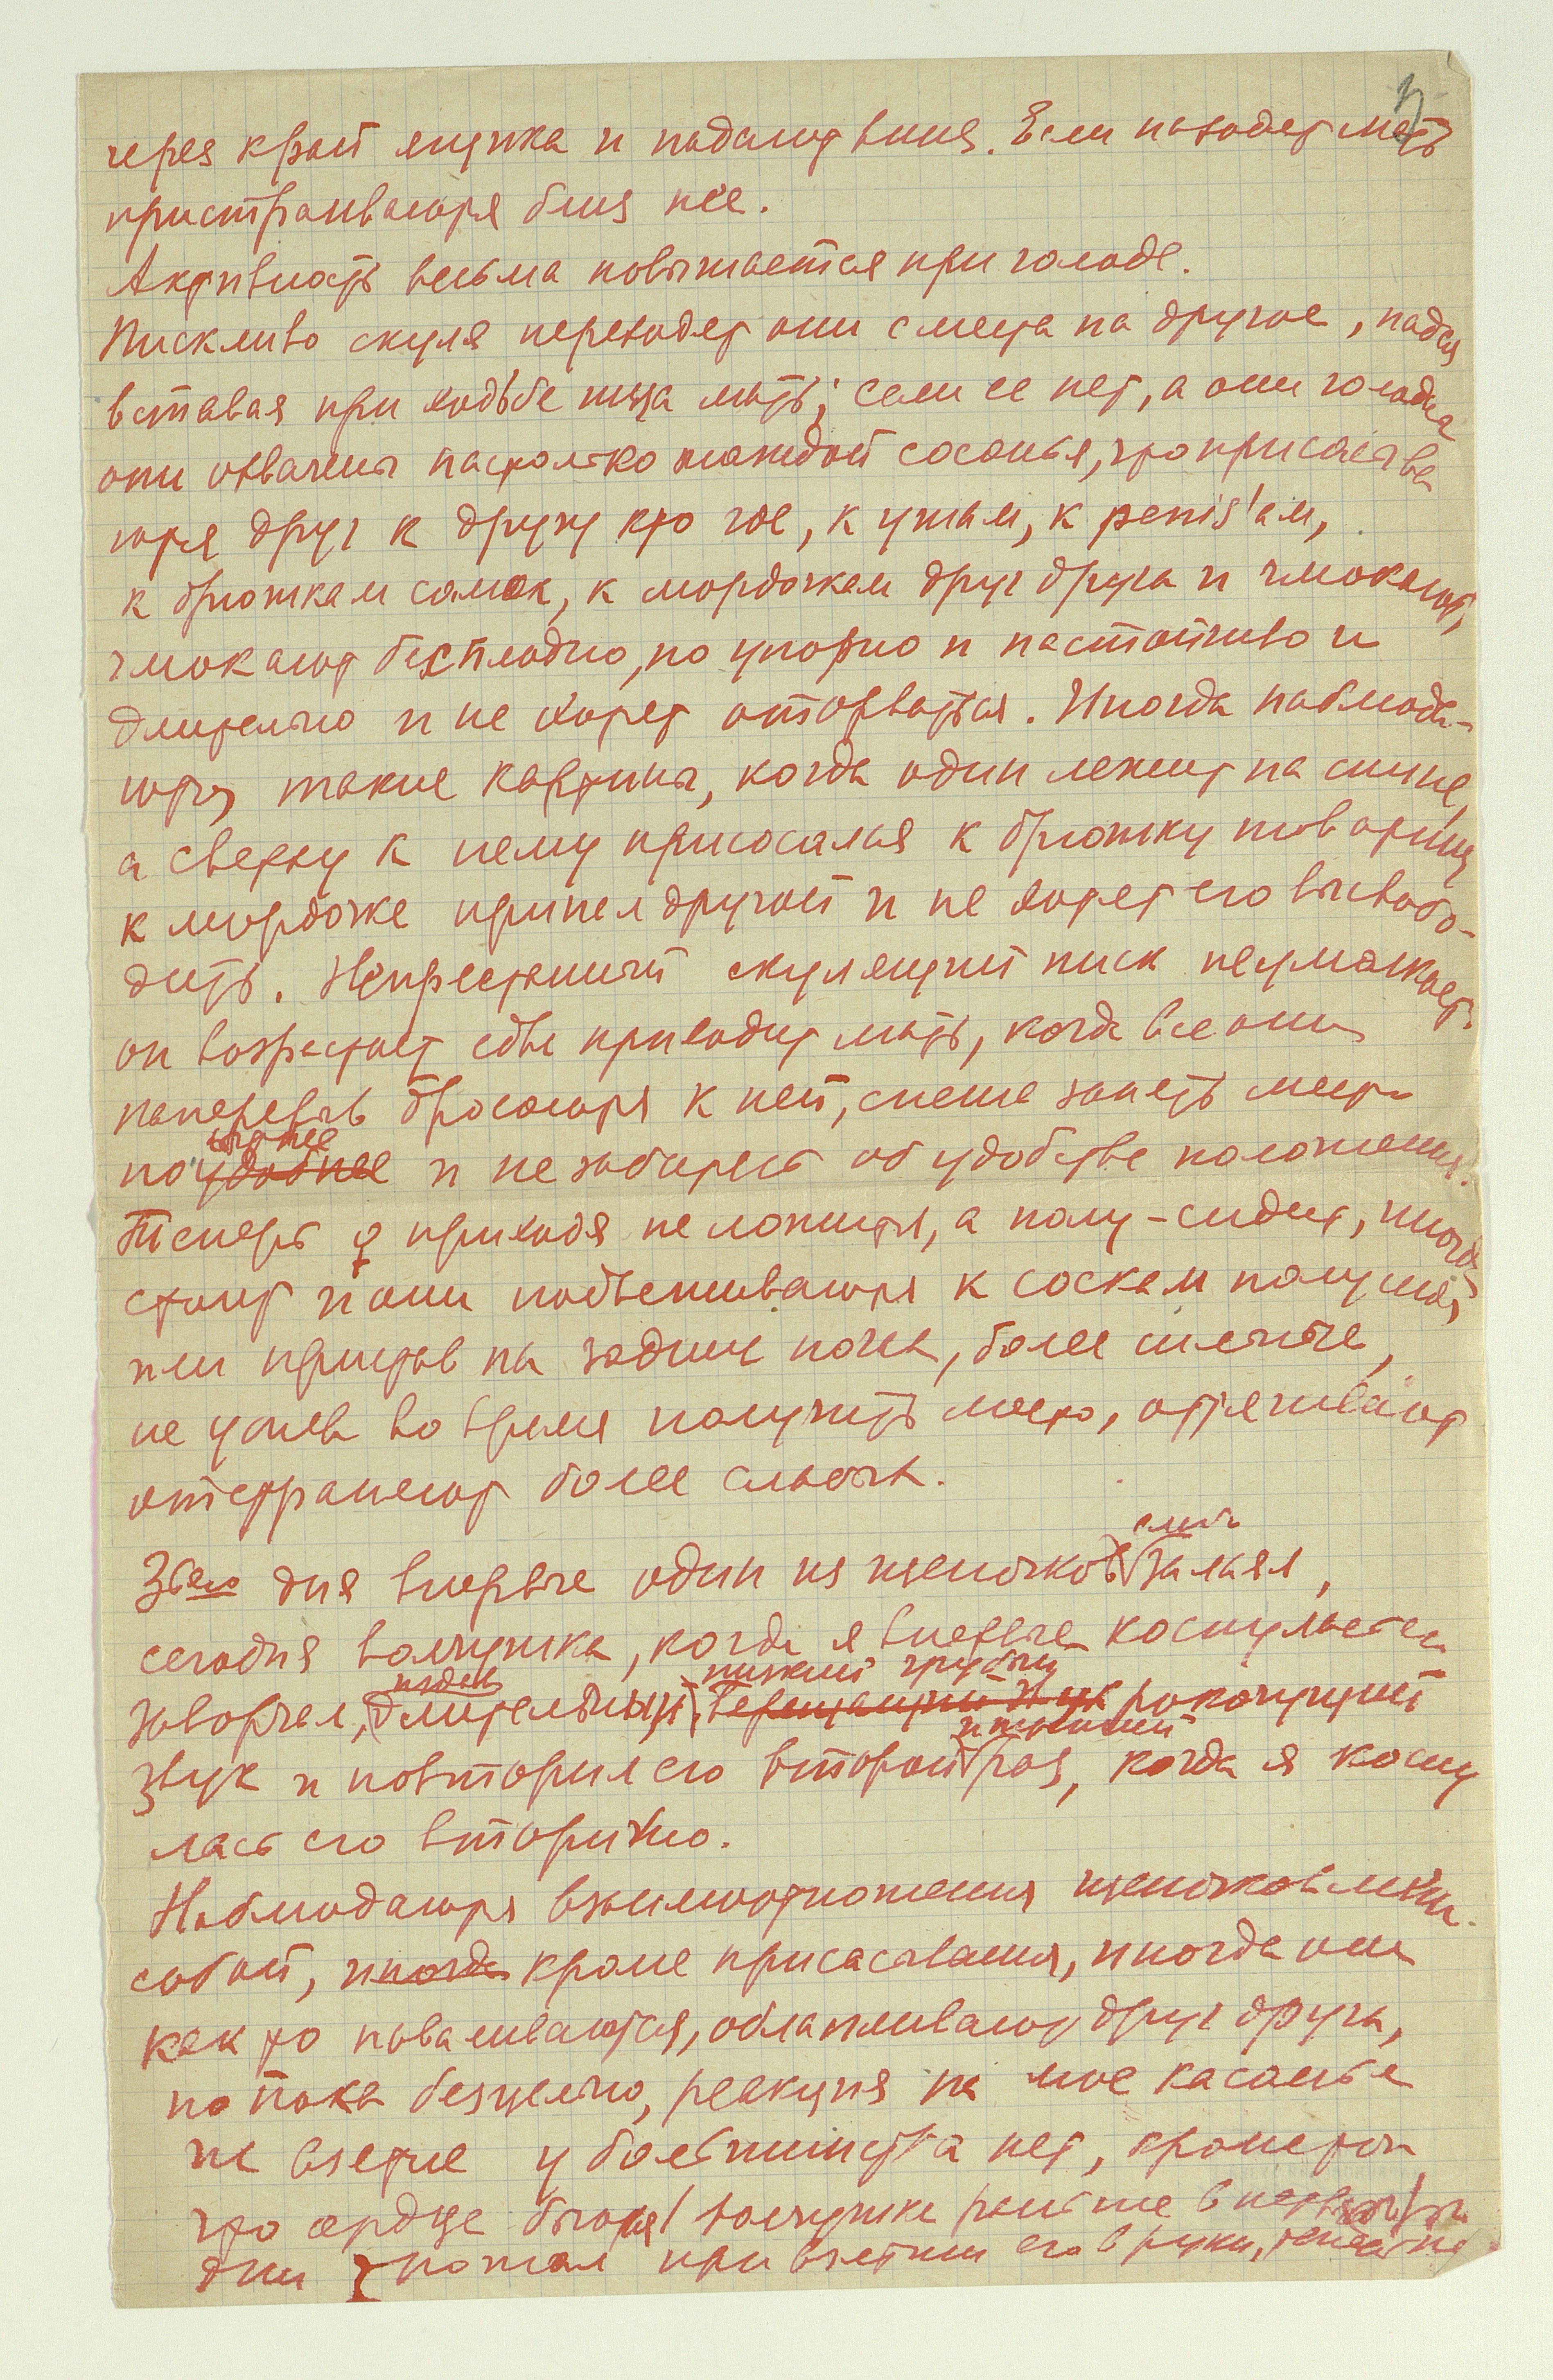 через край ящика и падают вниз. Если находят мать
пристраиваются близ нее.
Активность весьма повышается при голоде.
Пискливо скуля переходят они с места на другое, падая
вставая при ходьбе ища мать; если ее нет, а они голодны
они охвачены настолько жаждой сосанья, что присасыва
ются друг к другу кто где, к ушам, к penis'ам,
к брюшкам самок, к мордочкам друг друга и чмокают,
чмокают бесплодно, но упорно и настойчиво и
длительно и не хотят оторваться. Иногда наблюда-
ются такие картины, когда один лежит на спине,
а сверху к нему присосался к брюшку товарищ
к мордочке припел другой и не хотят его высвобо-
дить. Непрестанный скулящий писк неумолкает
он возрастает едва приходит мать, когда все они
наперерыв бросаются к ней, спеша занять место
поудобнее и не заботясь об удобстве положения.
Теперь ♀ приходя не ложится, а полу-сидит, иногда
стоит и они подвешиваются к соскам полусидя
или привстав на задние ножки, более сильные,
не успев во время получить место, оттягивают
отстраняют более слабых.
3его дня впервые один из щеночков залаял,
сегодня волчушка, когда я впервые коснулась его
низкий грубый
заворчал, длительный, рокочущий
звук и повторил его второй раз, когда я косну
лась его вторично.
Наблюдаются взаимоотношения щеночков между
собой, иногда кроме присасывания, иногда они
как то наваливаются, облапливают друг друга,
но пока безцельно, реакция на мое касанье
на взятие у большинства нет, кроме того
что сердце бьется волчушка раньше в первые
дни рожал при взятии его в руки,